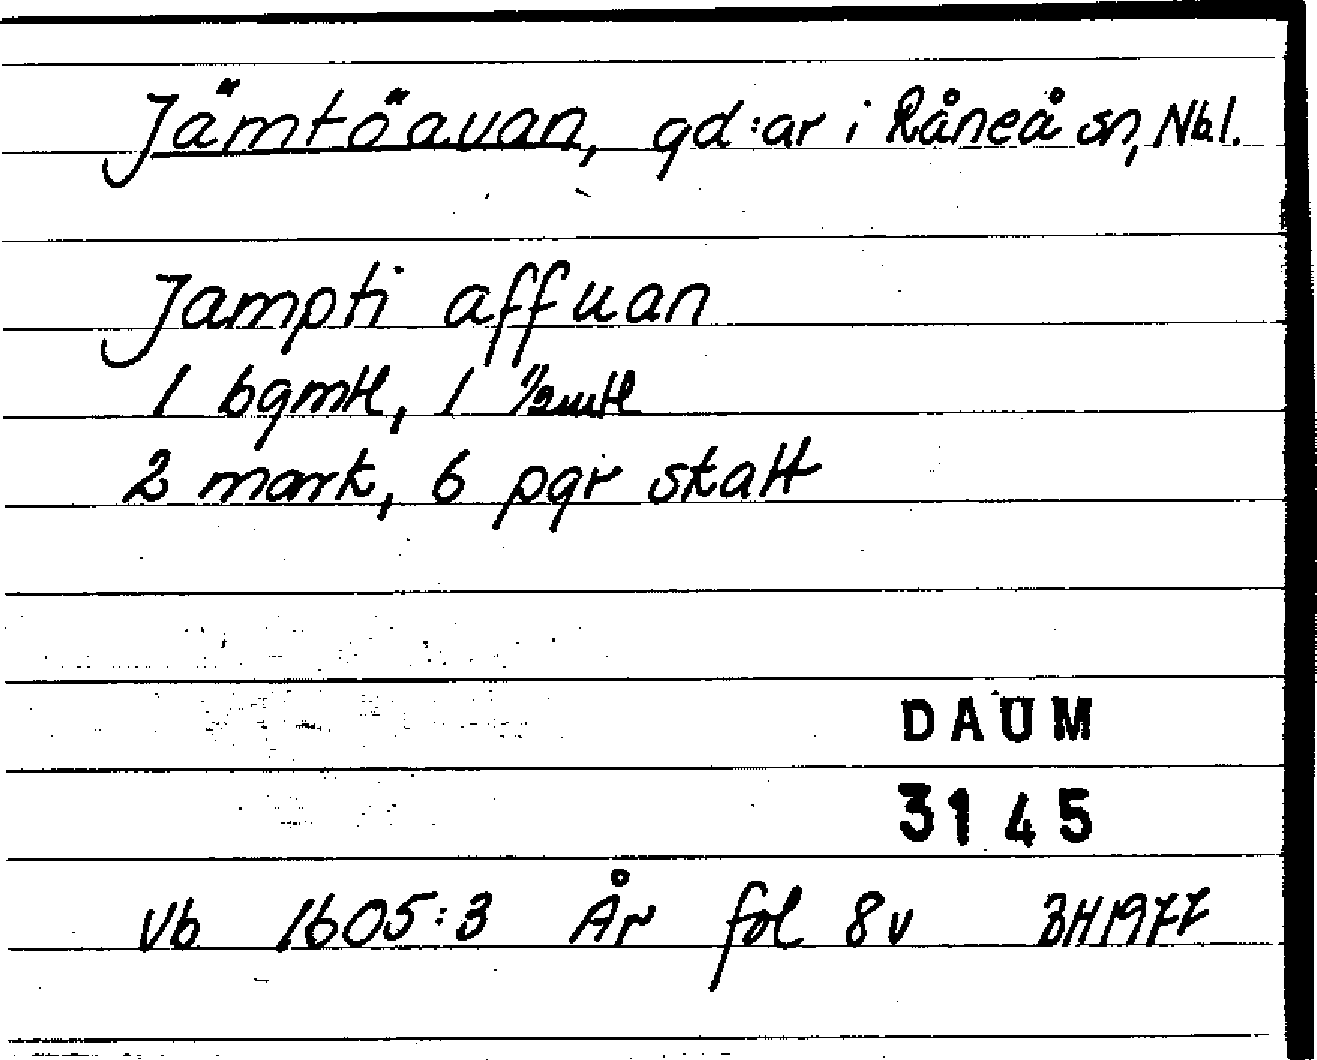 Jämtöavan, gd:ar i Råneå sn, Nbl.
Jampti affuan
1 bgmtl, 1 ½mtl
2 mark, 6 pgr skatt
DAUM
3145
Vb 1605:3 År fol 8v BH1977